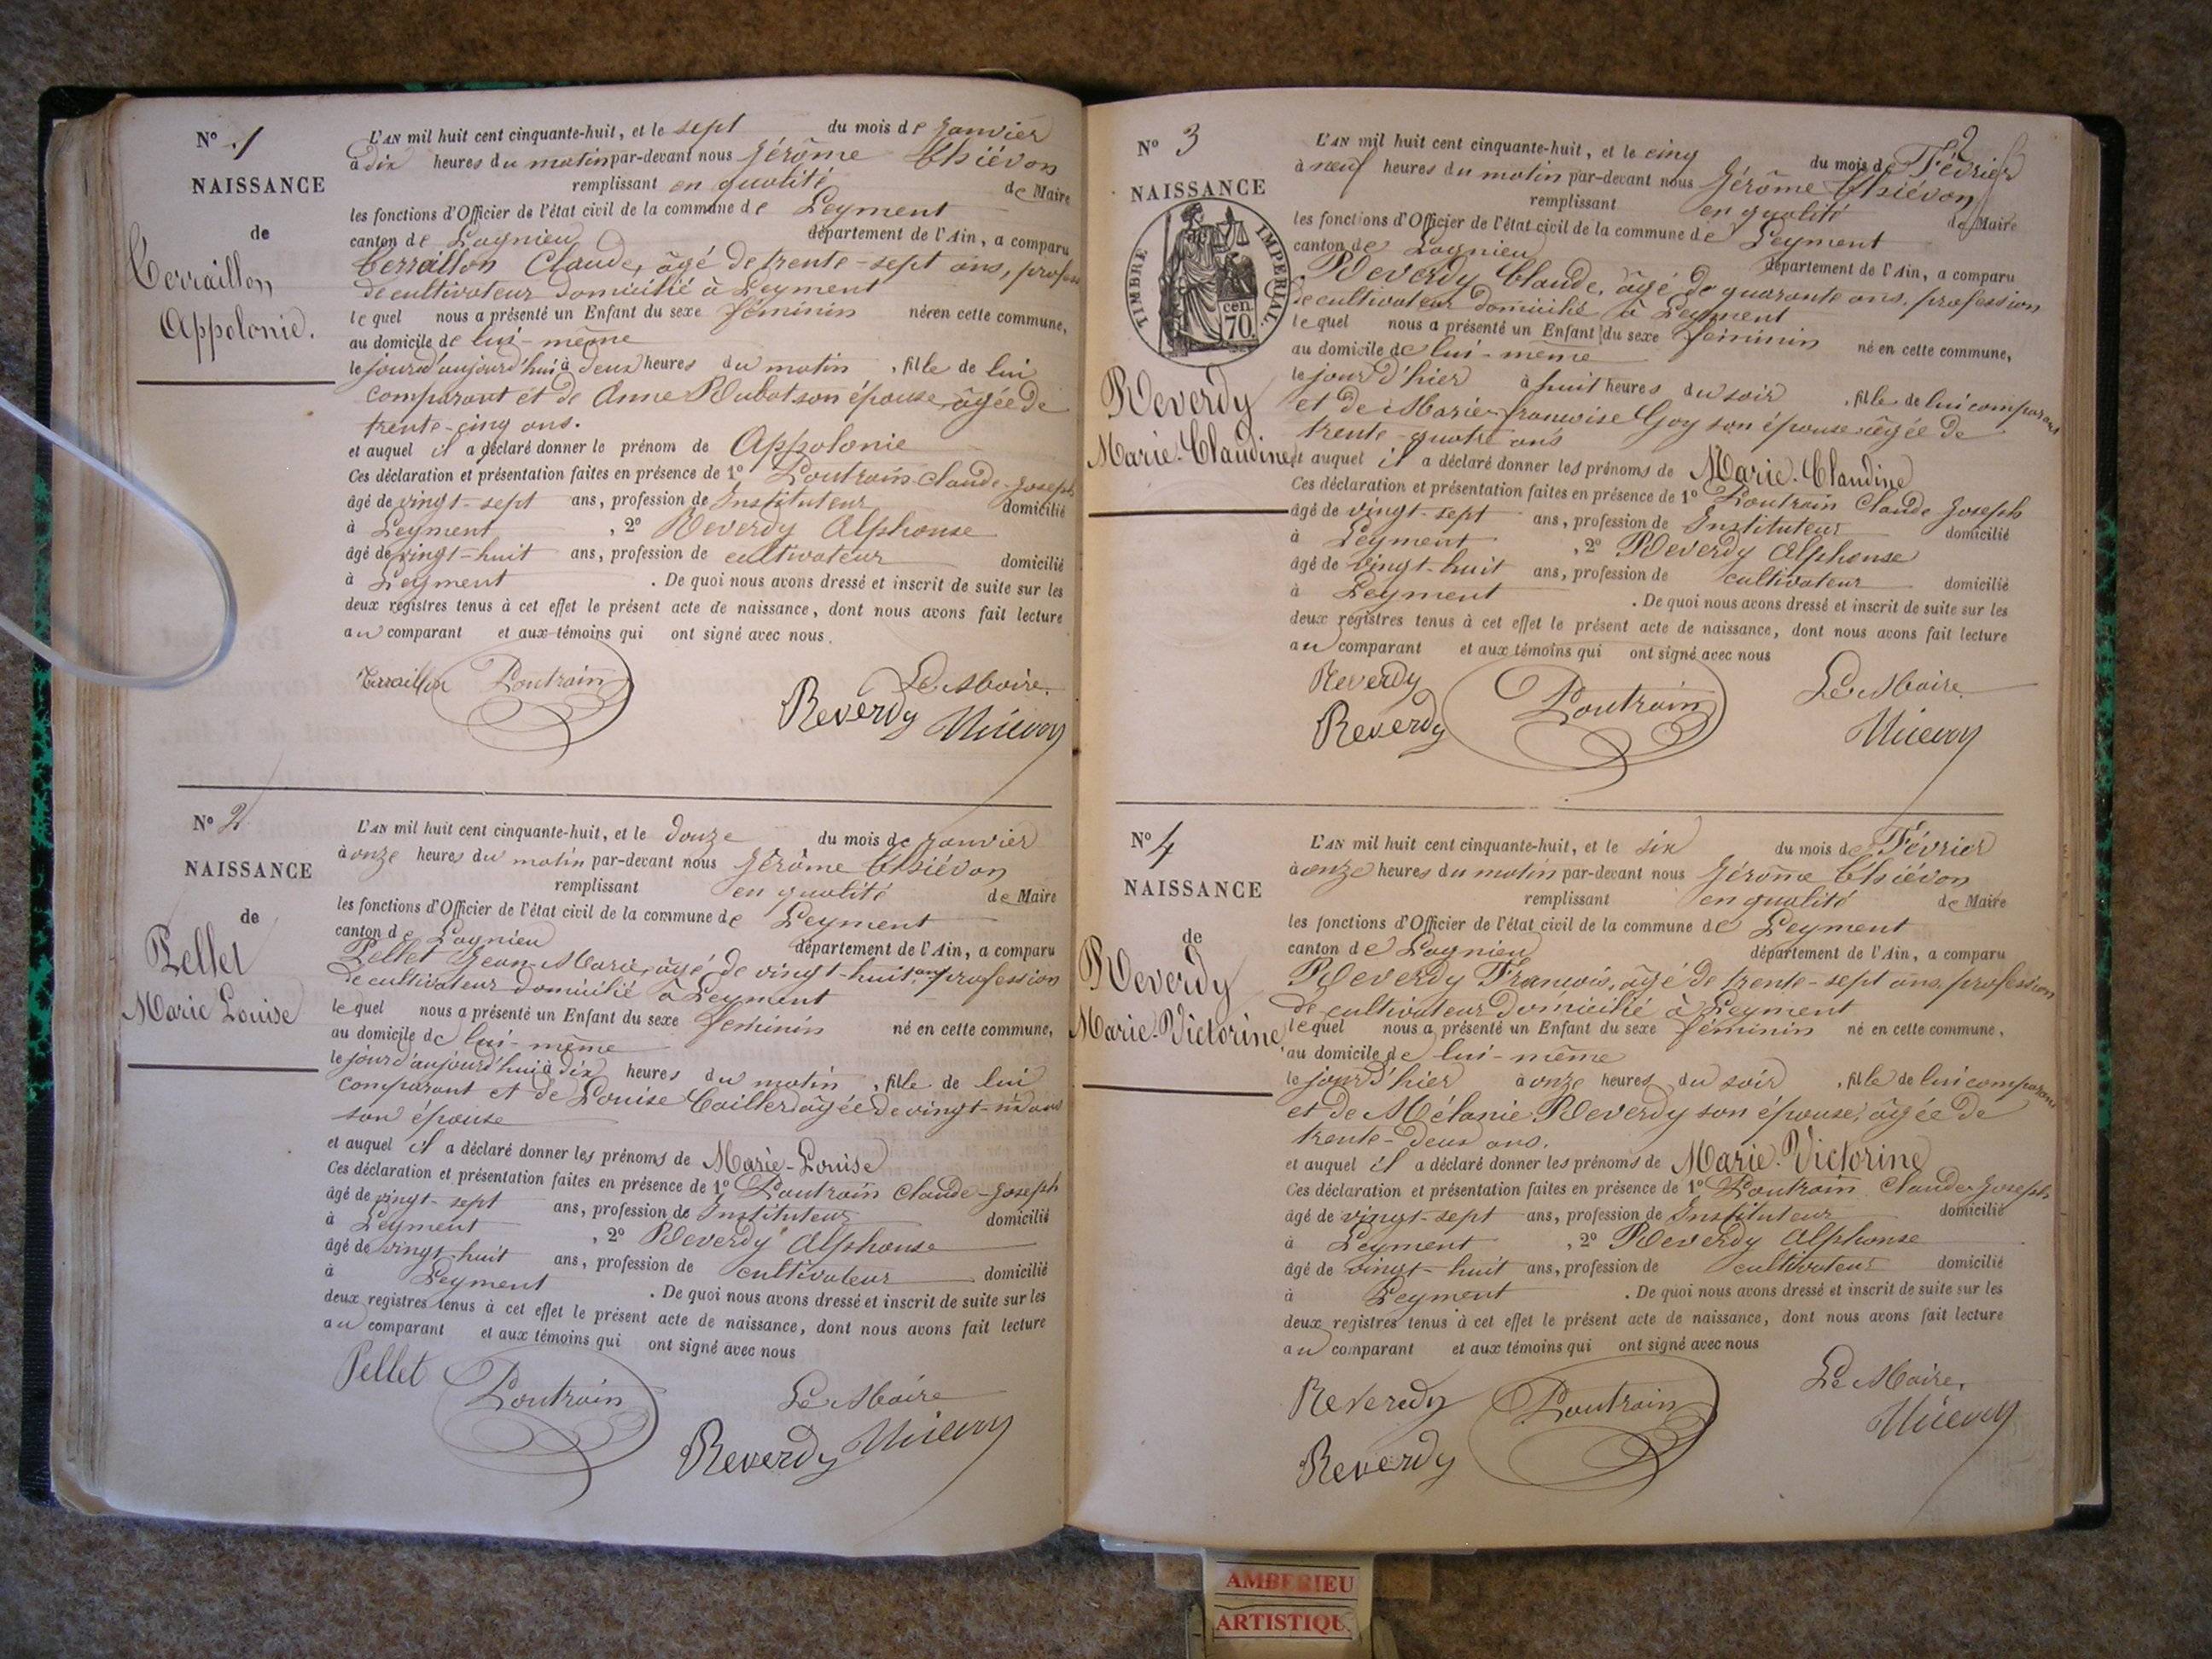 N° 1
NAISSANCE
de
Terraillon
Appolonie.
L'AN mil huit cent cinquante-huit, et le sept du mois de Janvier
à dix heures du matin par-devant nous Jérôme Thiévon
remplissant en qualité de Maire
les fonctions d'Officier de l'état civil de la commune de Leyment
canton de Lagnieu département de l'Ain, a comparu
Terraillon Claude, âgé de trente-sept ans, profess
de cultivateur domicilié à Leyment
lequel nous a présenté un Enfant du sexe féminin né en cette commune,
au domicile de lui-même
le jour d'aujourd'hui à deux heures du matin, fille de lui
comparant et de Anne Dubot son épouse, âgée de
trente-cinq ans.
et auquel il a déclaré donner le prénom de Appolonie
Ces déclaration et présentation faites en présence de 1° Poutrain Claude-Joseph
âgé de vingt-sept ans, profession de Instituteur domicilié
à Leyment, 2° Reverdy Alphonse
âgé de vingt-huit ans, profession de cultivateur domicilié
à Leyment. De quoi nous avons dressé et inscrit de suite sur les
deux registres tenus à cet effet le présent acte de naissance, dont nous avons fait lecture
au comparant et aux témoins qui ont signé avec nous.
Terraillon Poutrain Le Maire.
Reverdy Thiévon
N° 2
NAISSANCE
de
Pellet
Marie Louise
L'AN mil huit cent cinquante-huit, et le douze du mois de Janvier
à onze heures du matin par-devant nous Jérôme Thiévon
remplissant en qualité de Maire
les fonctions d'Officier de l'état civil de la commune de Leyment
canton de Lagnieu département de l'Ain, a comparu
Pellet Jean-Marie, âgé de vingt-huit ans, profession
de cultivateur domicilié à Leyment
lequel nous a présenté un Enfant du sexe féminin né en cette commune,
au domicile de lui-même
le jour d'aujourd'hui à dix heures du matin, fille de lui
comparant et de Louise âgée de vingt-un ans
son épouse
et auquel il a déclaré donner les prénoms de Marie-Louise
Ces déclaration et présentation faites en présence de 1° Poutrain Claude-Joseph
âgé de vingt-sept ans, profession de Instituteur domicilié
à Leyment, 2° Reverdy Alphonse
âgé de vingt-huit ans, profession de cultivateur domicilié
à Leyment. De quoi nous avons dressé et inscrit de suite sur les
deux registres tenus à cet effet le présent acte de naissance, dont nous avons fait lecture
au comparant et aux témoins qui ont signé avec nous
Pellet Poutrain Le Maire
Reverdy Thiévon
2
N° 3
NAISSANCE
de
TIMBRE IMPERIAL.
70 cen
Reverdy
Marie-Claudine
L'AN mil huit cent cinquante-huit, et le cinq du mois de Février
à neuf heures du matin par-devant nous Jérôme Thiévon
remplissant en qualité de Maire
les fonctions d'Officier de l'état civil de la commune de Leyment
canton de Lagnieu département de l'Ain, a comparu
Reverdy Claude, âgé de quarante ans, profession
de cultivateur domicilié à Leyment
lequel nous a présenté un Enfant du sexe féminin né en cette commune,
au domicile de lui-même
le jour d'hier à huit heures du soir, fille de lui comparant
et de Marie-francoise Goy son épouse âgée de
trente-quatre ans
et auquel il a déclaré donner les prénoms de Marie-Claudine
Ces déclaration et présentation faites en présence de 1° Poutrain Claude Joseph
âgé de vingt-sept ans, profession de Instituteur domicilié
à Leyment, 2° Reverdy Alphonse
âgé de vingt-huit ans, profession de cultivateur domicilié
à Leyment. De quoi nous avons dressé et inscrit de suite sur les
deux registres tenus à cet effet le présent acte de naissance, dont nous avons fait lecture
au comparant et aux témoins qui ont signé avec nous
Reverdy Poutrain Le Maire.
Reverdy Thiévon
N° 4
NAISSANCE
de
Reverdy
Marie-Victorine
L'AN mil huit cent cinquante-huit, et le six du mois de Février
à onze heures du matin par-devant nous Jérôme Thiévon
remplissant en qualité de Maire
les fonctions d'Officier de l'état civil de la commune de Leyment
canton de Lagnieu département de l'Ain, a comparu
Reverdy Francois, âgé de trente-sept ans, profession
de cultivateur domicilié à Leyment
lequel nous a présenté un Enfant du sexe féminin né en cette commune,
au domicile de lui-même
le jour d'hier à onze heures du soir, fille de lui comparant
et de Mélanie Reverdy son épouse, âgée de
trente-deux ans.
et auquel il a déclaré donner les prénoms de Marie-Victorine
Ces déclaration et présentation faites en présence de 1° Poutrain Claude Joseph
âgé de vingt-sept ans, profession de Instituteur domicilié
à Leyment, 2° Reverdy Alphonse
âgé de vingt-huit ans, profession de cultivateur domicilié
à Leyment. De quoi nous avons dressé et inscrit de suite sur les
deux registres tenus à cet effet le présent acte de naissance, dont nous avons fait lecture
au comparant et aux témoins qui ont signé avec nous
Reverdy Poutrain Le Maire,
Reverdy Thiévon
AMBERIEU
ARTISTIQU